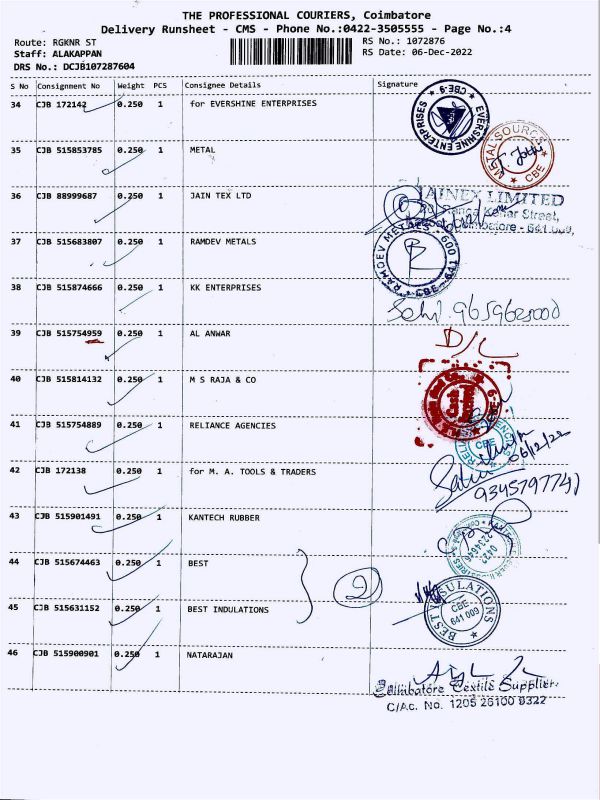 THE PROFESSIONAL COURIERS, Coimbatore
Delivery Runsheet - CMS - Phone No.:0422-3505555 - Page No.:4
Route: RGKNR ST
RS No.: 1072876
Staff: ALAKAPPAN
RS Date: 06-Dec-2022
DRS No.: DCJB107287604
S No Consignment No Weight PCS Consignee Details Signature
34 CJB 172142 0.250 1 for EVERSHINE ENTERPRISES
EVERSHINE ENTERPRISES ★ CBE-9 ★
35 CJB 515853785 0.250 1 METAL
METAL SOURCE ★ CBE ★
36 CJB 88999687 0.250 1 JAIN TEX LTD
JAINEX LIMITED
Street,
Coimbatore - 641 009,
37 CJB 515683807 0.250 1 RAMDEV METALS
RAMDEV METALS
38 CJB 515874666 0.250 1 KK ENTERPRISES
39 CJB 515754959 0.250 1 AL ANWAR
D/L
40 CJB 515814132 0.250 1 M S RAJA & CO
41 CJB 515754889 0.250 1 RELIANCE AGENCIES
CBE
06/12/22
42 CJB 172138 0.250 1 for M. A. TOOLS & TRADERS
43 CJB 515901491 0.250 1 KANTECH RUBBER
0422
2234646
44 CJB 515674463 0.250 1 BEST
2
45 CJB 515631152 0.250 1 BEST INDULATIONS
BEST INSULATIONS
CBE-
641 009
46 CJB 515900901 0.250 1 NATARAJAN
Coimbatore Textile Supplier
C/Ac. No. 1205 26100 9322